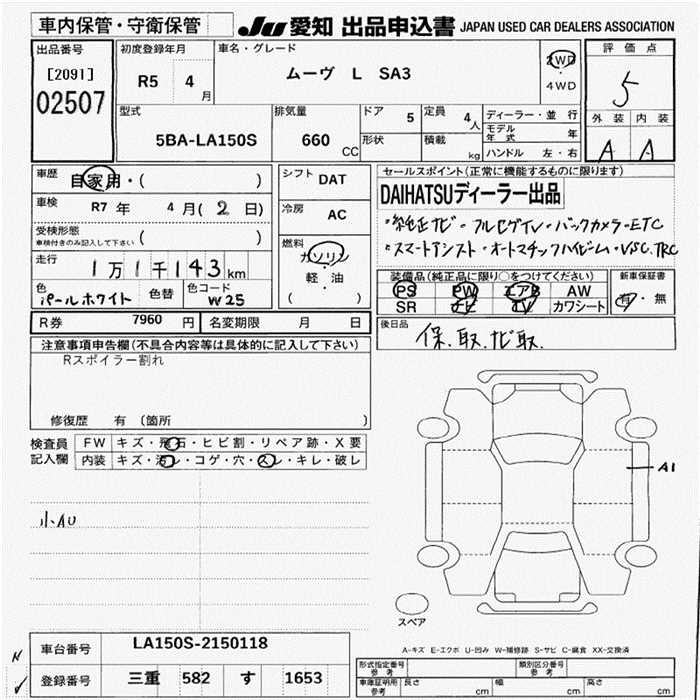 車内保管・守衛保管
JU 愛知 出品申込書 JAPAN USED CAR DEALERS ASSOCIATION
出品番号 [2091] 02507
初度登録年月 R5 4月
車名・グレード ムーヴ L SA3
2WD・4WD
評価点 5
外装 A 内装 A
型式 5BA-LA150S
排気量 660 CC
ドア 5 定員 4人
形状 積載 kg
ディーラー・並行
モデル年式 年
ハンドル 左・右
車歴 自家用・( )
車検 R7年 4月(2日)
受検形態 車検付きのみ記入して下さい ( )
走行 1万1千143km
色 パールホワイト 色替 色コード W25
シフト DAT
冷房 AC
燃料 ガソリン 軽・油 ( )
セールスポイント(正常に機能するものに限ります)
DAIHATSUディーラー出品
・純正ナビ・フルセグTV・バックカメラ・ETC
・スマートアシスト・オートマチックハイビーム・VSC.TRC
装備品(純正品に限り○をつけてください)
PS PW エアB AW
SR ナビ TV カワシート
新車保証書 有・無
R券 7960円 名変期限 月 日
後日品 保.取.ナビ取.
注意事項申告欄(不具合内容等は具体的に記入して下さい)
Rスポイラー割れ
修復歴 有 (箇所 )
検査員記入欄
FW キズ・飛石・ヒビ割・リペア跡・X要
内装 キズ・汚レ・コゲ・穴・スレ・キレ・破レ
小AU
A1
スペア
A-キズ E-エクボ U-凹み W-補修跡 S-サビ C-腐食 XX-交換済
車台番号 LA150S-2150118
登録番号 三重 582 す 1653
形式指定番号 参考 類別区分番号 参考
車庫証明用 参考 長さ cm 幅 cm 高さ cm